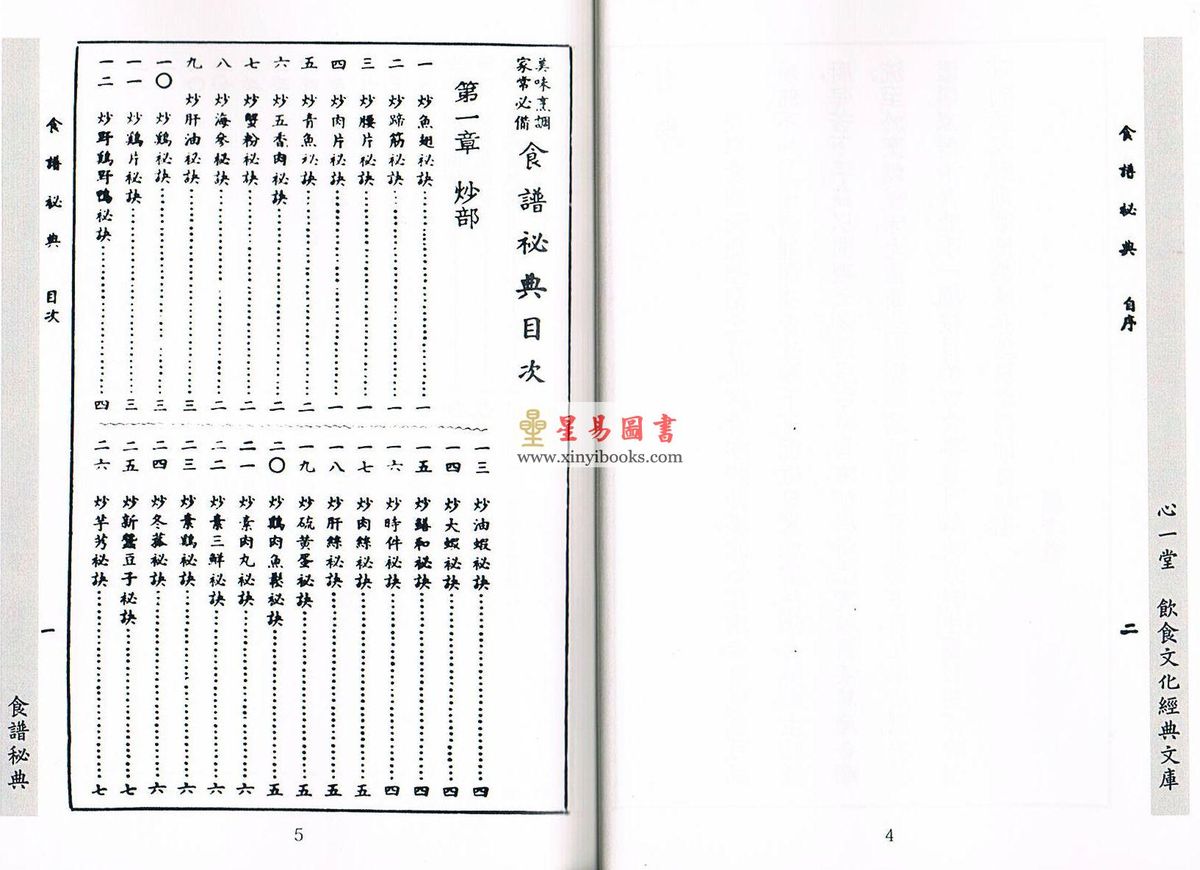 食譜秘典
自序
二
心一堂 飲食文化經典文庫
4
美味烹調
家常必備
食譜祕典目次
第一章 炒部
一 炒魚翅祕訣 一
二 炒蹄筋祕訣 一
三 炒腰片祕訣 一
四 炒肉片祕訣 一
五 炒青魚祕訣 二
六 炒五香肉祕訣 二
七 炒蟹粉祕訣 二
八 炒海參祕訣 二
九 炒肝油祕訣 三
一〇 炒鷄祕訣 三
一一 炒鷄片祕訣 三
一二 炒野鷄野鴨祕訣 四
一三 炒油蝦祕訣 四
一四 炒大蝦祕訣 四
一五 炒鱔和祕訣 四
一六 炒時件祕訣 四
一七 炒肉絲祕訣 五
一八 炒肝絲祕訣 五
一九 炒硫黃蛋祕訣 五
二〇 炒鷄肉魚鬆祕訣 五
二一 炒素肉丸祕訣 六
二二 炒素三鮮祕訣 六
二三 炒素鷄祕訣 六
二四 炒冬菇祕訣 六
二五 炒新蠶豆子祕訣 七
二六 炒芋艿祕訣 七
食譜祕典 目次
一
食譜秘典
5
星易圖書
www.xinyibooks.com